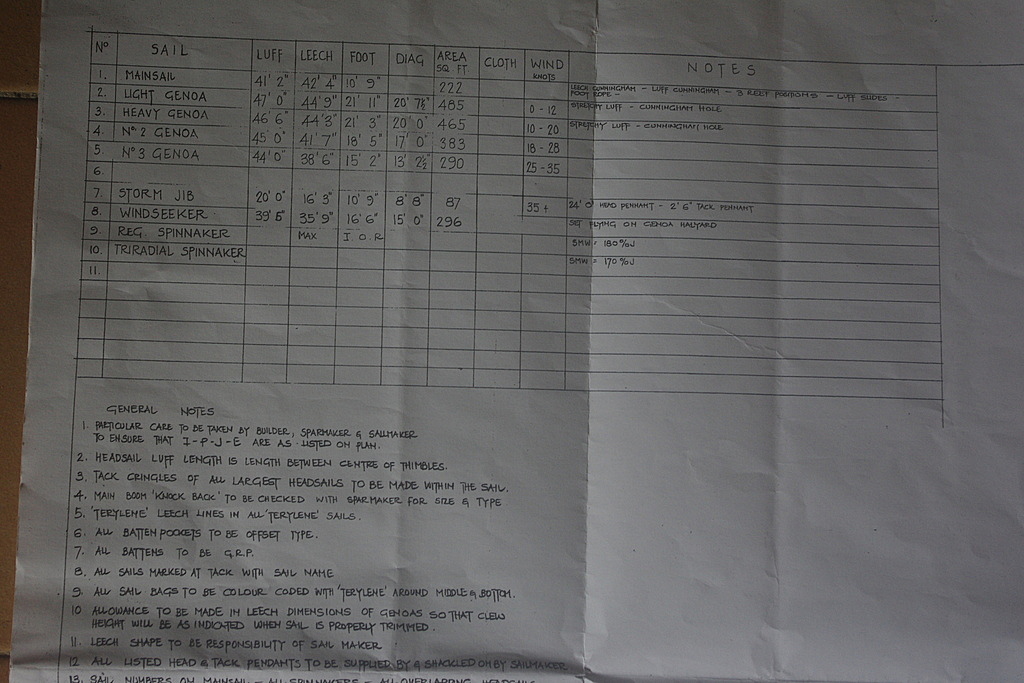 Nº SAIL LUFF LEECH FOOT DIAG AREA SQ. FT. CLOTH WIND KNOTS NOTES
1. MAINSAIL 41' 2" 42' 4" 10' 9" 222 LEECH CUNNINGHAM - LUFF CUNNINGHAM - 3 REEF POSITIONS - LUFF SLIDES -
FOOT ROPE -
2. LIGHT GENOA 47' 0" 44' 9" 21' 11" 20' 7½" 485 0-12 STRETCHY LUFF - CUNNINGHAM HOLE
3. HEAVY GENOA 46' 6" 44' 3" 21' 3" 20' 0" 465 10-20 STRETCHY LUFF - CUNNINGHAM HOLE
4. Nº 2 GENOA 45' 0" 41' 7" 18' 5" 17' 0" 383 18-28
5. Nº 3 GENOA 44' 0" 38' 6" 15' 2" 13' 2½" 290 25-35
6.
7. STORM JIB 20' 0" 16' 3" 10' 9" 8' 8" 87 35+ 24' 0" HEAD PENNANT - 2' 6" TACK PENNANT
8. WINDSEEKER 39' 6" 35' 9" 16' 6" 15' 0" 296 SET FLYING ON GENOA HALYARD
9. REG. SPINNAKER MAX I.O.R SMW = 180%J
10. TRIRADIAL SPINNAKER SMW = 170%J
11.
GENERAL NOTES
1. PARTICULAR CARE TO BE TAKEN BY BUILDER, SPARMAKER & SAILMAKER
TO ENSURE THAT I-P-J-E ARE AS LISTED ON PLAN.
2. HEADSAIL LUFF LENGTH IS LENGTH BETWEEN CENTRE OF THIMBLES.
3. TACK CRINGLES OF ALL LARGEST HEADSAILS TO BE MADE WITHIN THE SAIL.
4. MAIN BOOM 'KNOCK BACK' TO BE CHECKED WITH SPARMAKER FOR SIZE & TYPE
5. 'TERYLENE' LEECH LINES IN ALL 'TERYLENE' SAILS.
6. ALL BATTEN POCKETS TO BE OFFSET TYPE.
7. ALL BATTENS TO BE G.R.P.
8. ALL SAILS MARKED AT TACK WITH SAIL NAME
9. ALL SAIL BAGS TO BE COLOUR CODED WITH 'TERYLENE' AROUND MIDDLE & BOTTOM.
10 ALLOWANCE TO BE MADE IN LEECH DIMENSIONS OF GENOAS SO THAT CLEW
HEIGHT WILL BE AS INDICATED WHEN SAIL IS PROPERLY TRIMMED.
11. LEECH SHAPE TO BE RESPONSIBILITY OF SAIL MAKER
12 ALL LISTED HEAD & TACK PENDANTS TO BE SUPPLIED BY & SHACKLED ON BY SAILMAKER
13. SAIL NUMBERS ON MAINSAIL - ALL SPINNAKERS - ALL OVERLAPPING HEADSAILS